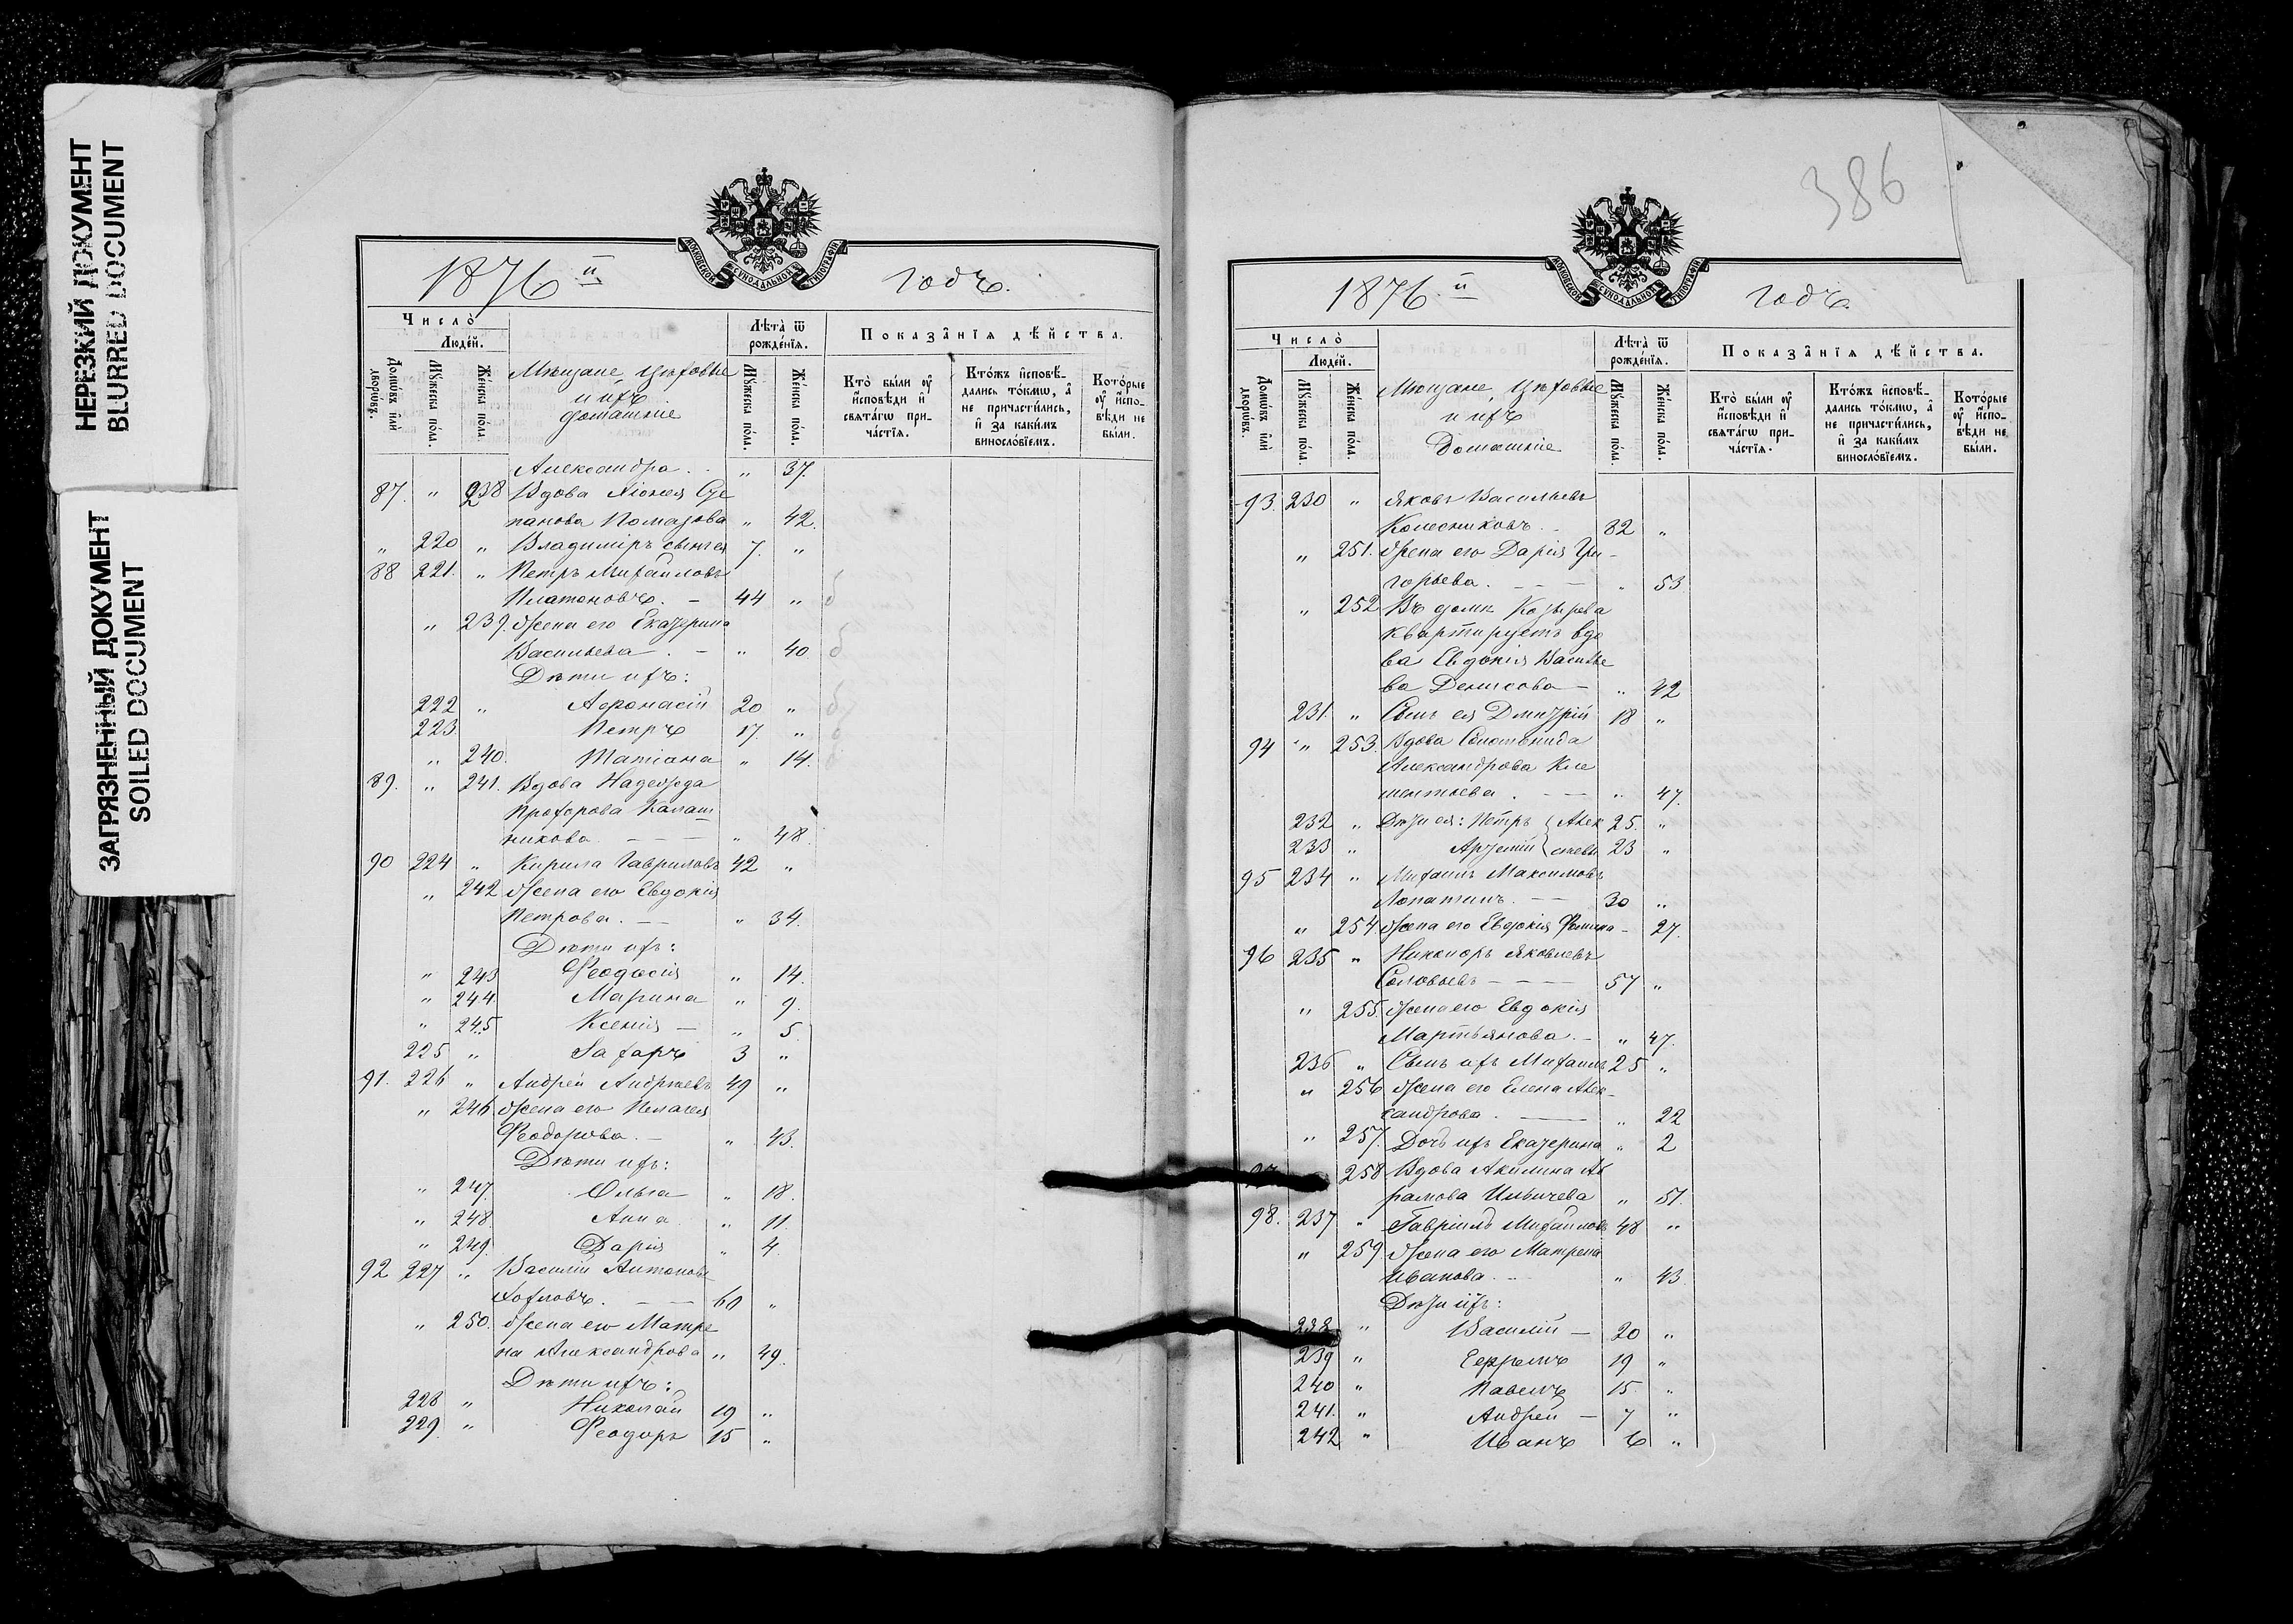 НЕРЕЗКИЙ ДОКУМЕНТ
BLURRED DOCUMENT
ЗАГРЯЗНЕННЫЙ ДОКУМЕНТ
SOILED DOCUMENT
МОСКОВСКОЙ СѴНОДАЛЬНОЙ ТИПОГРАФІИ
1876й годъ.
Число̀
Люде́й.
Домѡ́въ и҆лѝ дворѡ́въ.
Мꙋ́жеска по́ла.
Же́нска по́ла.
Мѣщане, цѣховые
и ихъ
домашніе
Лѣ́та ѿ рожде́нїѧ.
Мꙋ́жеска по́ла.
Же́нска по́ла.
Показа̑нїѧ дѣ́йства.
Кто̀ бы́ли ᲂу҆ и҆́сповѣди и҆ свѧта́гѡ прича́стїѧ.
Кто́жъ и҆сповѣ́дались то́кмѡ, а҆ не причасти́лись, и҆ за каки́мъ винослѡ́вїемъ.
Кото́рые ᲂу҆ и҆́сповѣди не бы́ли.
Александра . . „ 37.
87. „ 238 Вдова Хіонія Сте
панова Помазова „ 42.
„ 220 „ Владиміръ сынъ ея 7. „
88 221. „ Петръ Михайловъ
Платоновъ. – 44 „
„ 239. Жена его Екатерина
Васильева . – „ 40
Дѣти ихъ:
222 „ Афонасій 20 „
223. Петръ 17. „
„ 240. Татіана „ 14.
89. „ 241. Вдова Надежда
Прохорова Калаш
никова. – – – „ 48.
90 224 „ Кирила Гавриловъ 42 „
„ 242 Жена его Евдокія
Петрова. – – „ 34.
Дѣти ихъ:
„ 243 Феодосія „ 14.
„ 244. Марина „ 9.
„ 245 Ксенія – „ 5
225 „ Захаръ 3 „
91. 226 „ Андрей Андреевъ 49 „
„ 246 Жена его Пелагея
Феодорова. – „ 43.
Дѣти ихъ:
„ 247. Ольга „ 18.
„ 248. Анна „ 11.
„ 249. Дарія „ 4.
92 227 „ Василій Антоновъ
Хохловъ. – – 60 „
„ 250. Жена его Матре
на Александрова „ 49.
Дѣти ихъ:
228 „ Николай 19 „
229. „ Феодоръ 15 „
386
МОСКОВСКОЙ СѴНОДАЛЬНОЙ ТИПОГРАФІИ
1876.й годъ.
Число̀
Люде́й.
Домѡ́въ и҆лѝ дворѡ́въ.
Мꙋ́жеска по́ла.
Же́нска по́ла.
Мѣщане, цѣховые
и ихъ
Домашніе
Лѣ́та ѿ рожде́нїѧ.
Мꙋ́жеска по́ла.
Же́нска по́ла.
Показа̑нїѧ дѣ́йства.
Кто̀ бы́ли ᲂу҆ и҆́сповѣди и҆ свѧта́гѡ прича́стїѧ.
Кто́жъ и҆сповѣ́дались то́кмѡ, а҆ не причасти́лись, и҆ за каки́мъ винослѡ́вїемъ.
Кото́рые ᲂу҆ и҆́сповѣди не бы́ли.
93. 230 „ Яковъ Васильевъ
Колесниковъ. – 82 „
„ 251. Жена его Дарія Гри-
горьева. – – – „ 53
„ 252 Въ домѣ Козырева
квартируетъ вдо
ва Евдокія Василье
ва Денисова – „ 42
231. „ Сынъ ея Дмитрій 18 „
94 „ 253. Вдова Соломонида
Александрова Кле
ментьева . – – „ 47.
232 „ Дѣти ея: Петръ Алек 25. „
233 „ Артемій сѣевы 23 „
95 234 „ Михаилъ Максимовъ
Лопатинъ. – – 30 „
„ 254. Жена его Евдокія Фомина – 27.
96 235 „ Никоноръ Яковлевъ
Соловьевъ – – – 57 „
„ 255. Жена его Евдокія
Мартьянова. – „ 47.
236 „ Сынъ ихъ Михаилъ 25 „
„ 256 Жена его Елена Алек-
сандрова . – „ 22
„ 257. Дочь ихъ Екатерина „ 2
97 258 Вдова Акилина Аб
рамова Ильичева „ 51.
98. 237 „ Гавріилъ Михайловъ 48 „
„ 259 Жена его Матрена
Иванова. – „ 43.
Дѣти ихъ:
238 „ Василій – 20 „
239 „ Ефремъ 19 „
240 „ Павелъ 15. „
241. „ Андрей – 7 „
242 „ Иванъ 6 „